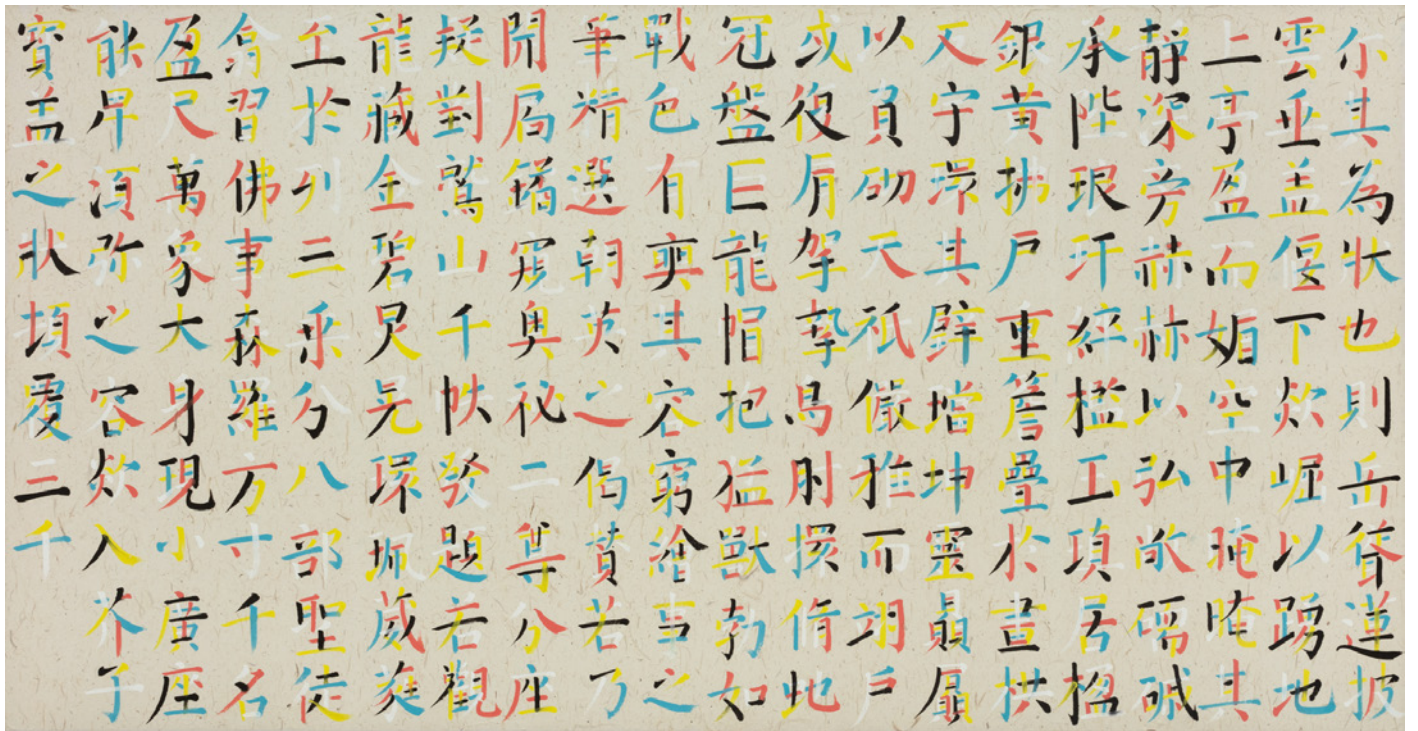 尒其為狀也則岳聳蓮披
雲垂盖偃下欻崛以踴地
上亭盈而媚空中晻晻其
静深旁赫赫以弘敞礝磩
承陛琅玕綷檻工瑱居楹
銀黄拂戸重簷疊於畫栱
又宇環其壁璫坤靈贔屭
以負砌天祇儼雅而翊戶
或役肩拏摯鳥肘擐脩虵
冠盤巨龍帽抱猛獸勃如
戰色有奭其容窮繪事之
筆精選朝英之偈賛若乃
開扃鐍窺奧祕二尊分座
疑對鷲山千帙發題若觀
龍藏金碧炅晃環珮葳蕤
至於列三乘分八部聖徒
翕習佛事森羅方寸千名
盈尺萬象大身現小廣座
能卑須弥之容欻入芥子
寶盖之狀頃覆三千